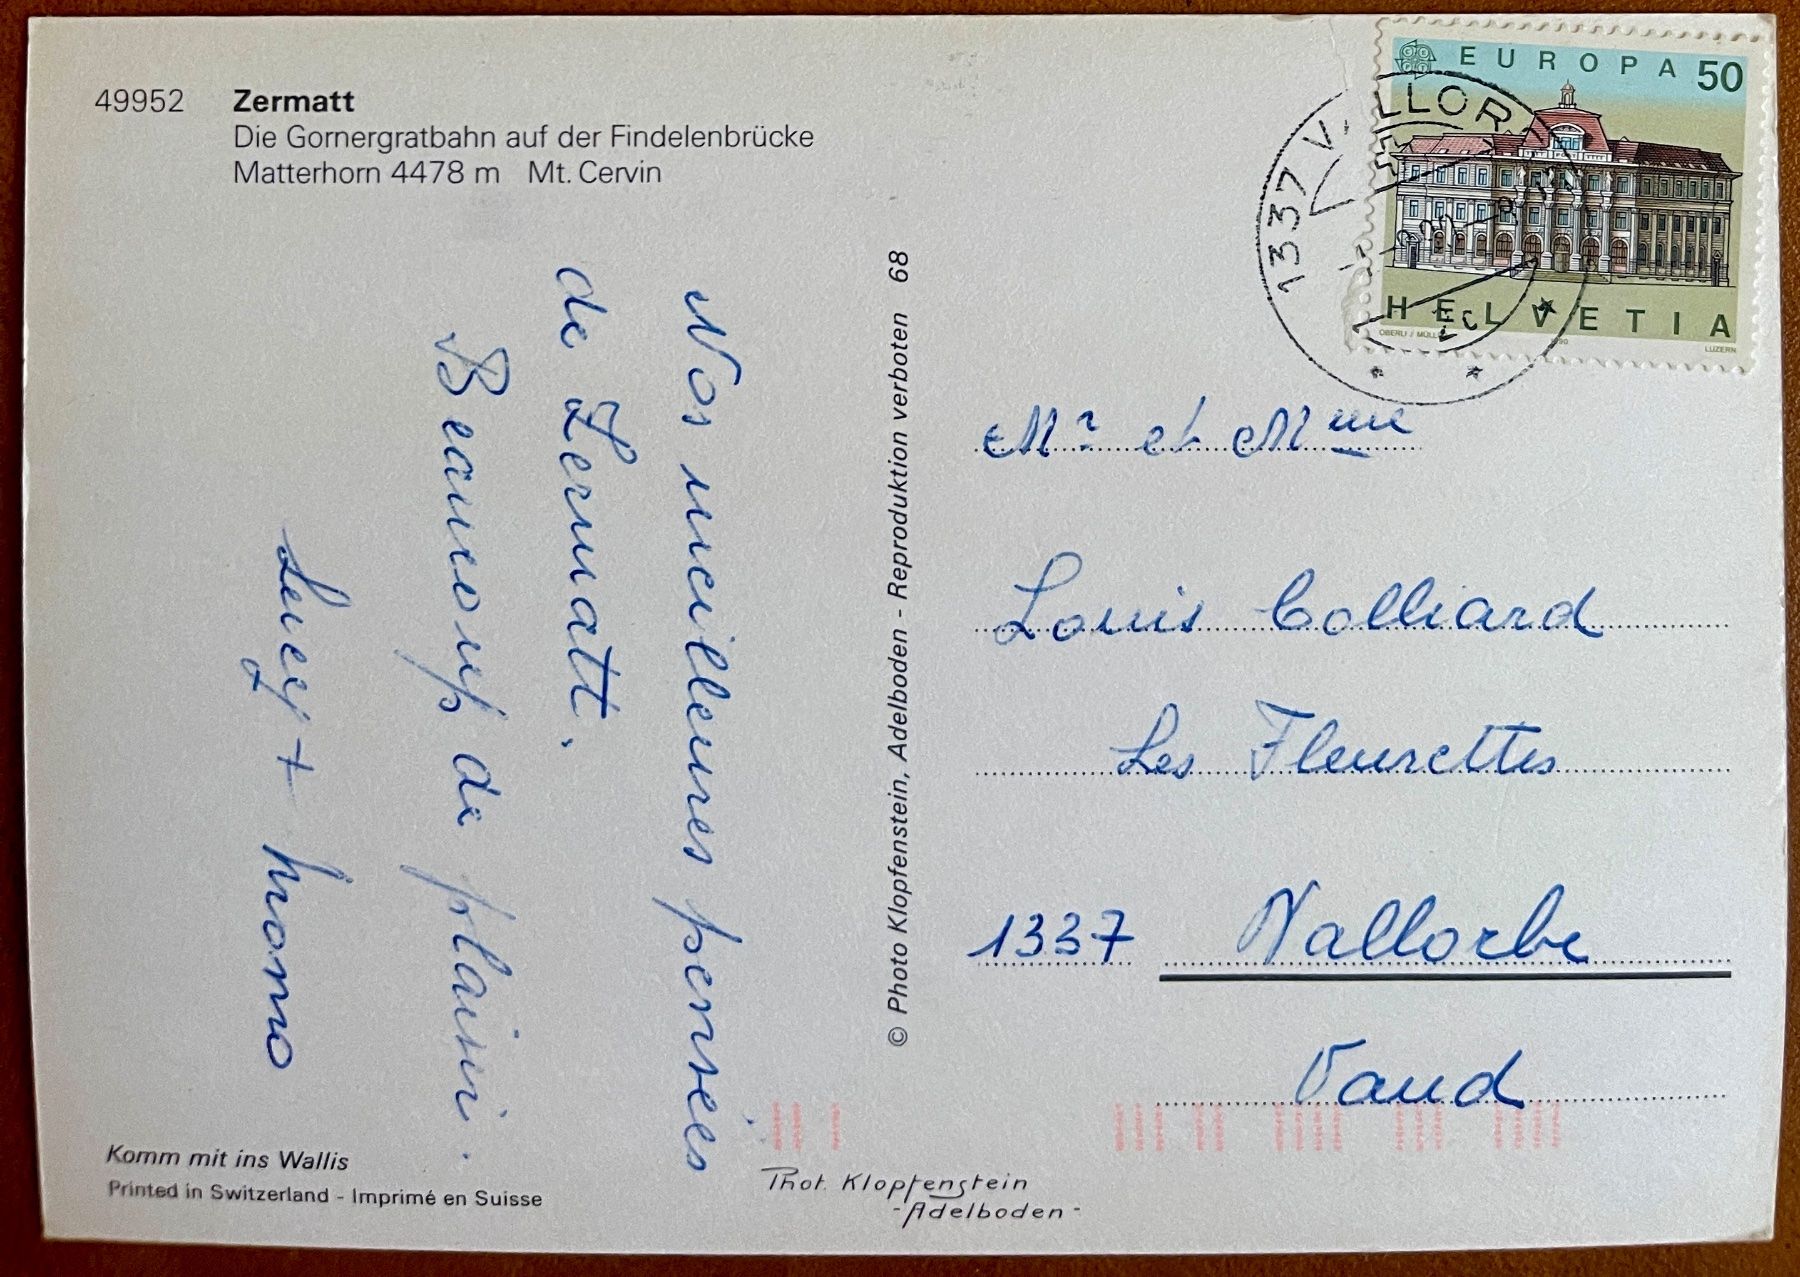 49952 Zermatt
Die Gornergratbahn auf der Findelenbrücke
Matterhorn 4478 m Mt. Cervin
Nos meilleures pensées
de Zermatt.
Beaucoup de plaisir.
© Photo Klopfenstein, Adelboden - Reproduktion verboten 68
EUROPA 50
HELVETIA
LUZERN
1337 VALLOR
Mr et Mme
Louis Colliard
Les Fleurettes
1337 Vallorbe
Vaud
Komm mit ins Wallis
Printed in Switzerland - Imprimé en Suisse
Phot. Klopfenstein
-Adelboden-